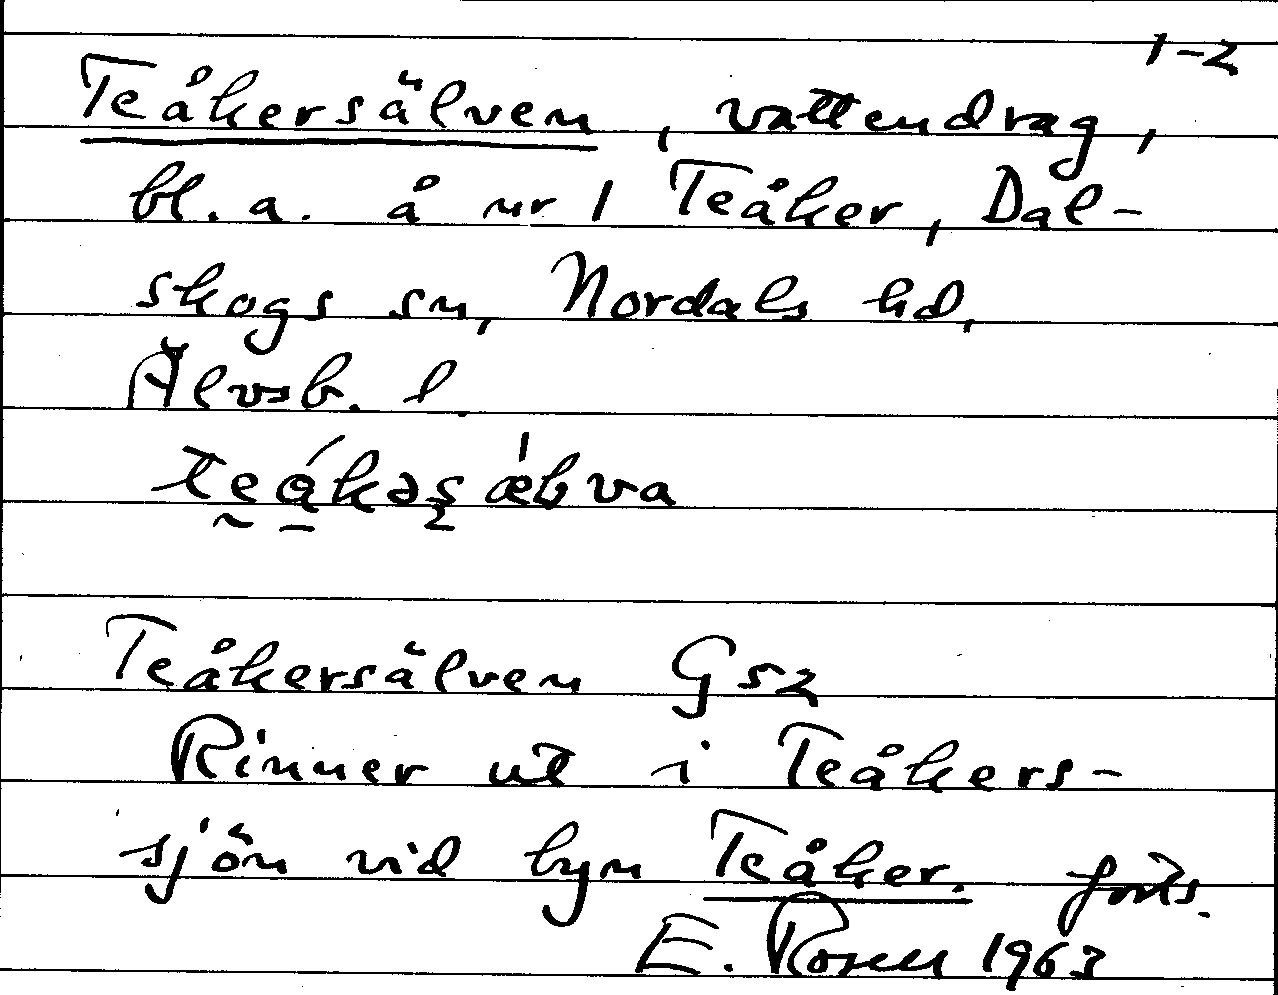 1-2
Teåkersälven, vattendrag,
bl. a. å nr 1 Teåker, Dal-
skogs sn, Nordals hd,
Älvsb. l.
Teåkersälven G52
Rinner ut i Teåkers-
sjön vid byn Teåker. forts.
E. Rosell 1963